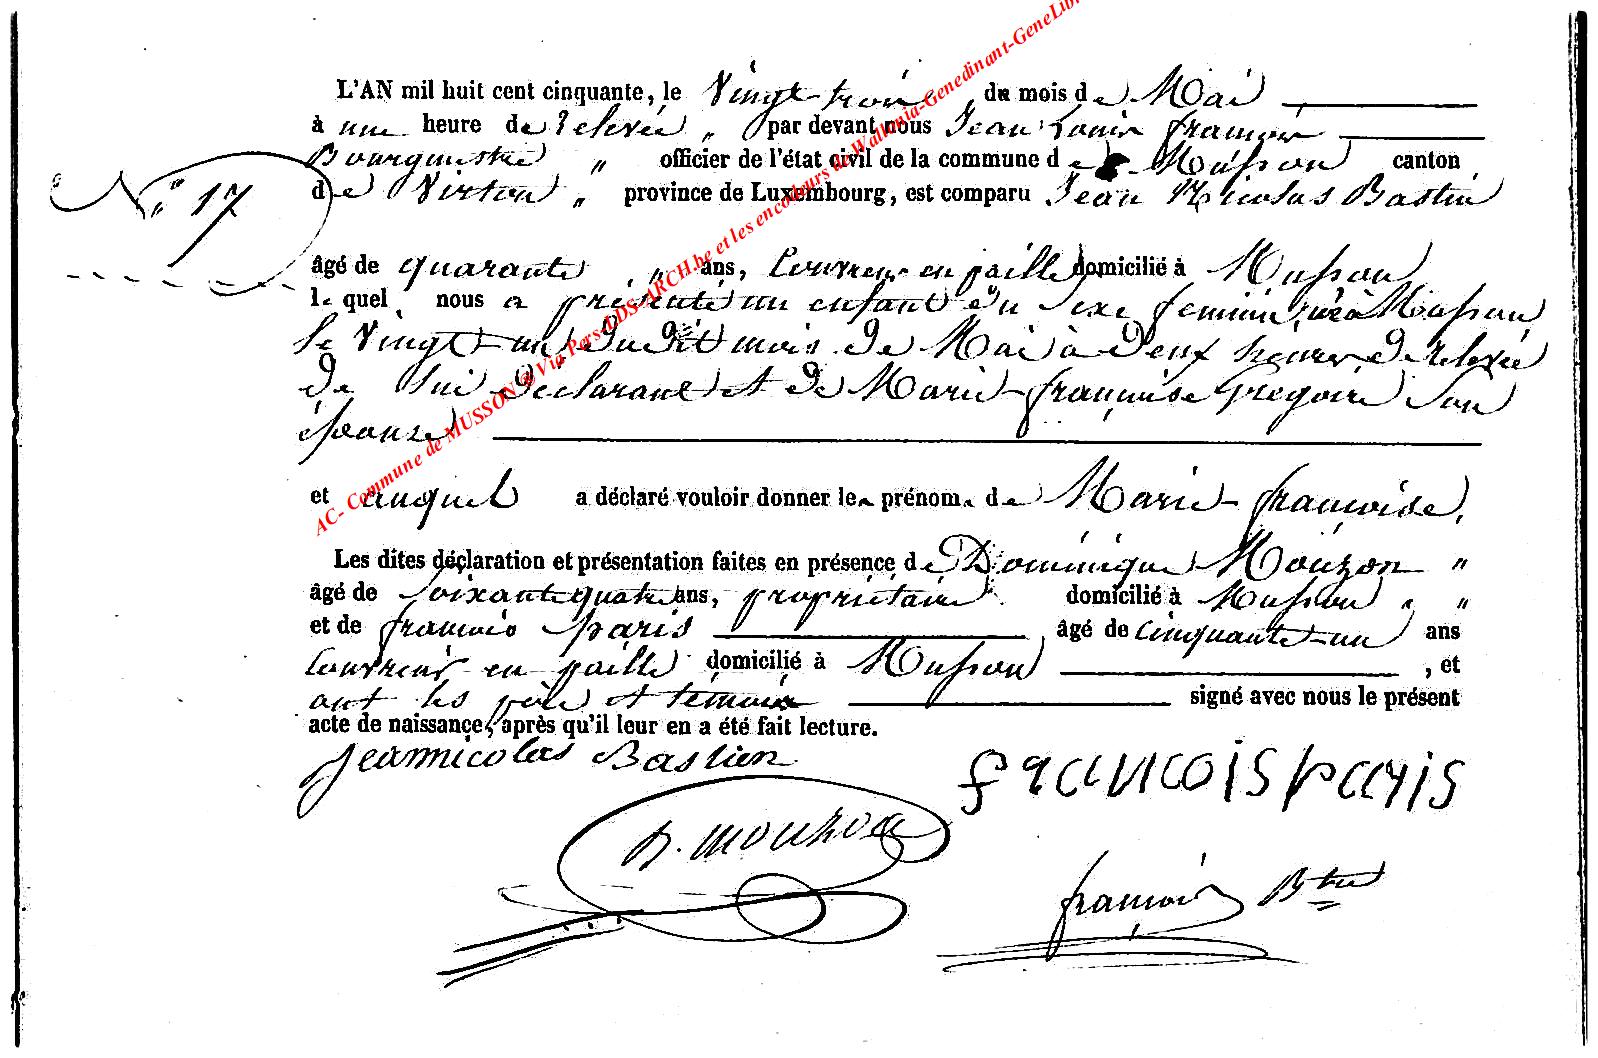 L'AN mil huit cent cinquante, le Vingt-trois du mois de Mai
à une heure de relevée " par devant nous Jean Louis françois
Bourgmestre " officier de l'état civil de la commune de Musson canton
N.° 17
de Virton " province de Luxembourg, est comparu Jean Nicolas Bastin
âgé de quarante " ans, Couvreur en paille domicilié à Musson
lequel nous a présenté un enfant du sexe feminin, né à Musson
le Vingt-un dudit mois de Mai à deux heures de relevée
de lui déclarant et de Marie-françoise Gregoire Son
épouse
et auquel a déclaré vouloir donner les prénoms de Marie-françoise.
Les dites déclaration et présentation faites en présence de Dominique Mouzon "
âgé de Soixante quatre ans, propriétaire domicilié à Musson " "
et de francois paris âgé de Cinquante-un ans
Couvreur en paille domicilié à Musson , et
ont les père et témoins signé avec nous le présent
acte de naissance, après qu'il leur en a été fait lecture.
Jeannicolas Bastien
francois paris
D. mouzon
françois Btre
AC- Commune de MUSSON ® Via Pers-LDS-ARCH.be et les encodeurs de Wallonia-Genedinant-GeneLibr